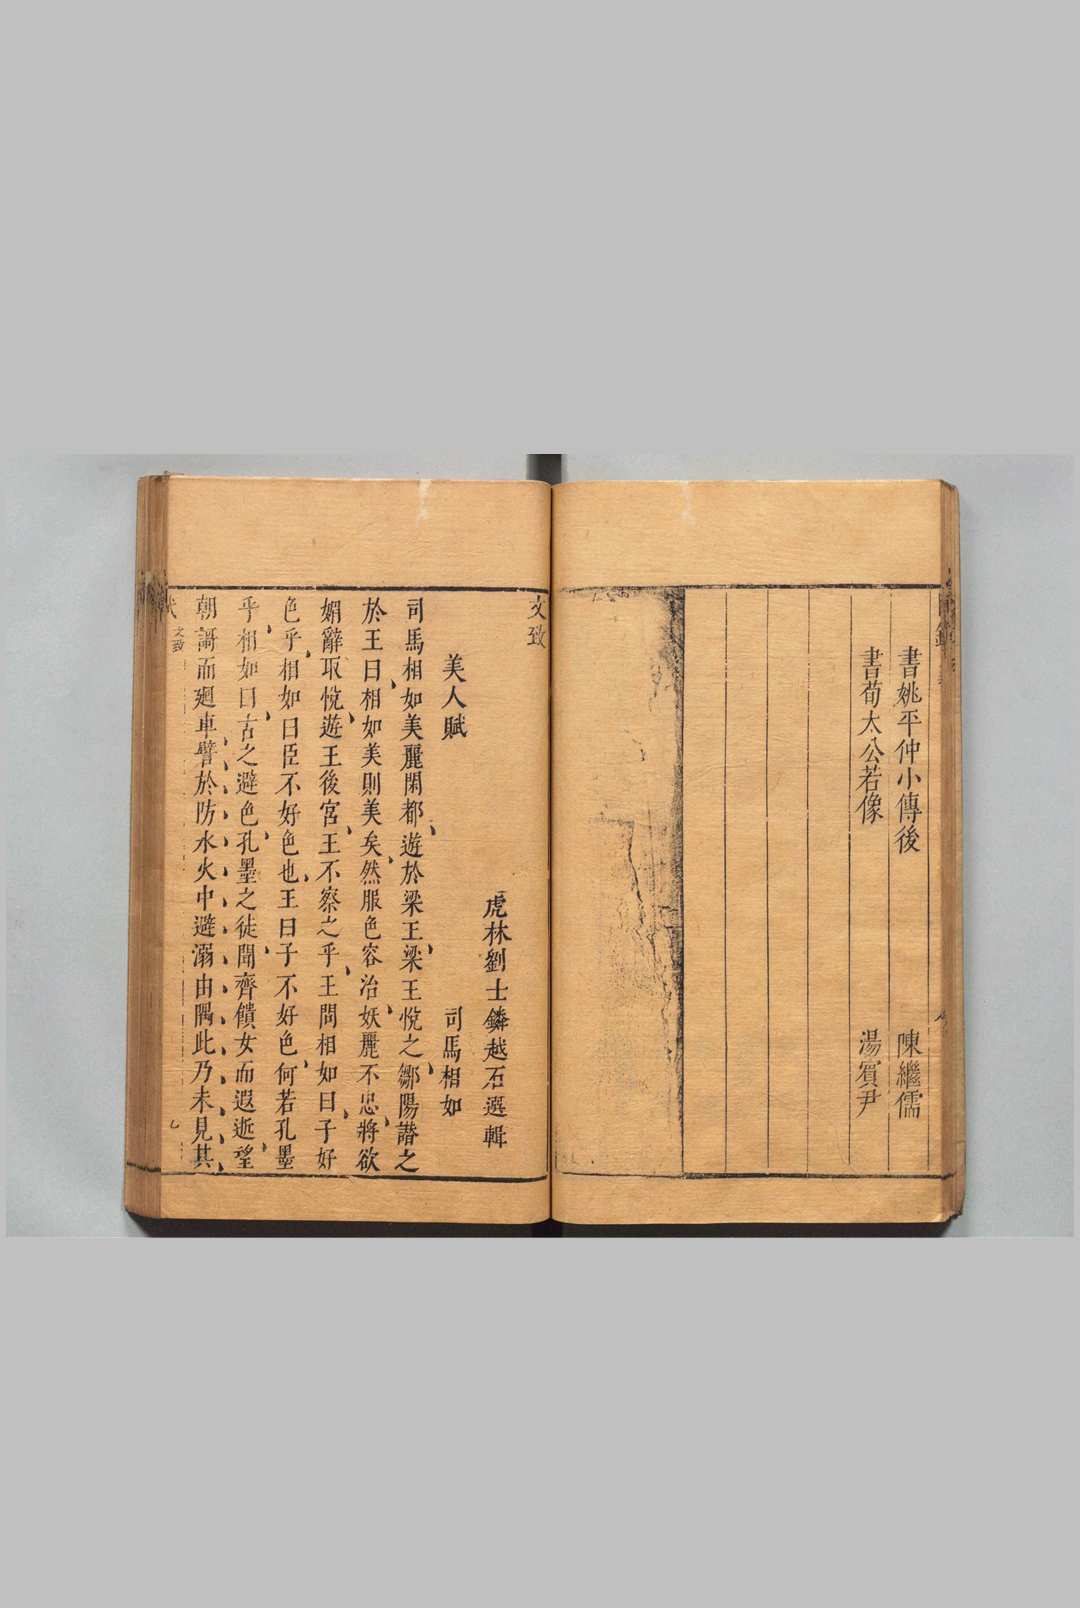 書姚平仲小傳後 陳繼儒
書荀太公若像 湯賓尹
文致
虎林劉士鏻越石選輯
美人賦 司馬相如
司馬相如美麗閑都遊於梁王梁王悅之鄒陽譖之
於王曰相如美則美矣然服色容冶妖麗不忠將欲
媚辭取悅遊王後宮王不察之乎王問相如曰子好
色乎相如曰臣不好色也王曰子不好色何若孔墨
乎相如曰古之避色孔墨之徒聞齊饋女而遐逝望
朝謌而廻車譬於防水火中避溺由隅此乃未見其
文致